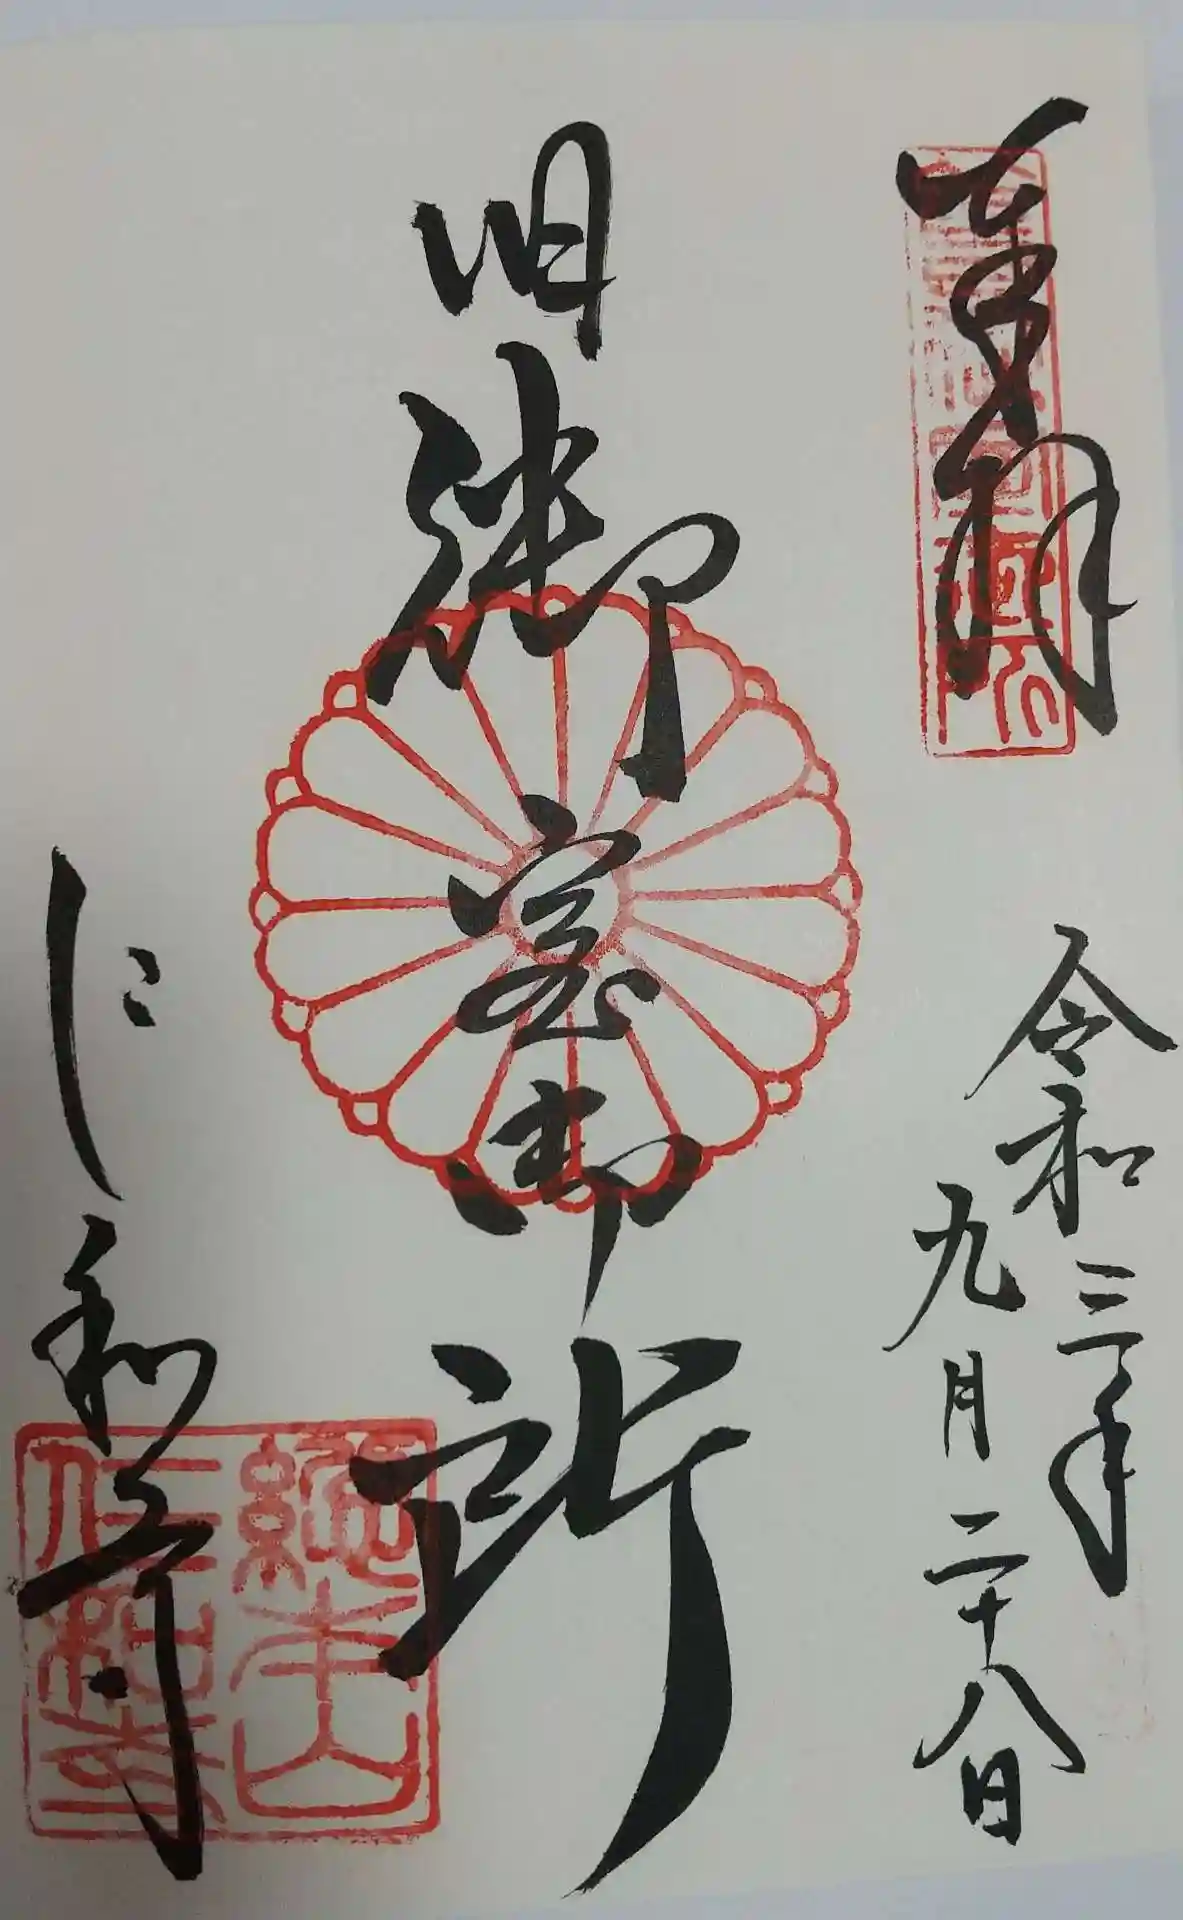 奉拝
令和三年
九月二十八日
旧御室御所
仁和寺
総本山
仁和寺